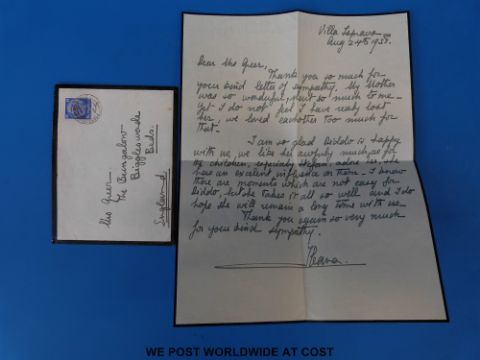 Villa Leprava
Aug 24th 1938.
Dear Mrs Greer,
Thank you so much for
your kind letter of sympathy. My Mother
was so wonderful, meant so much to me —
yet I do not feel I have really lost
her, we loved eachother too much for
that.
I am so glad is happy
with us, we like her awfully much, as for
the children, especially adore her, she
has an excellent influence on them. I know
there are moments which are not easy for
but she takes it all so well and I do
hope she will remain a long time with us —
Thank you again so very much
for your kind sympathy.
Mrs Greer
The Bungalow
Biggleswade
Beds.
England
WE POST WORLDWIDE AT COST